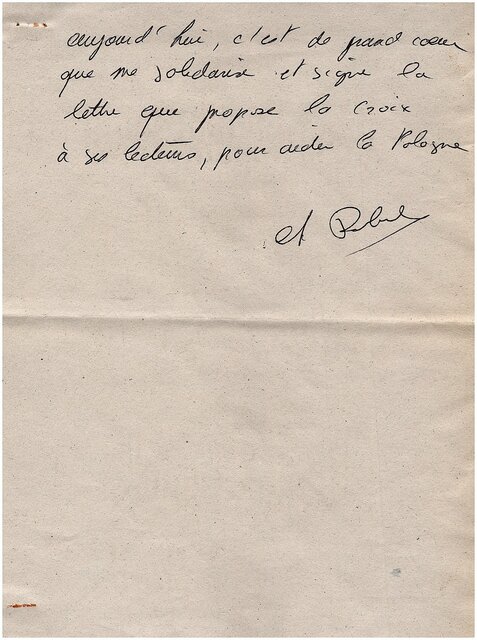 aujourd'hui, c'est de grand coeur
que me solidarise et signe la
lettre que propose la Croix
à ses lecteurs, pour aider la Pologne